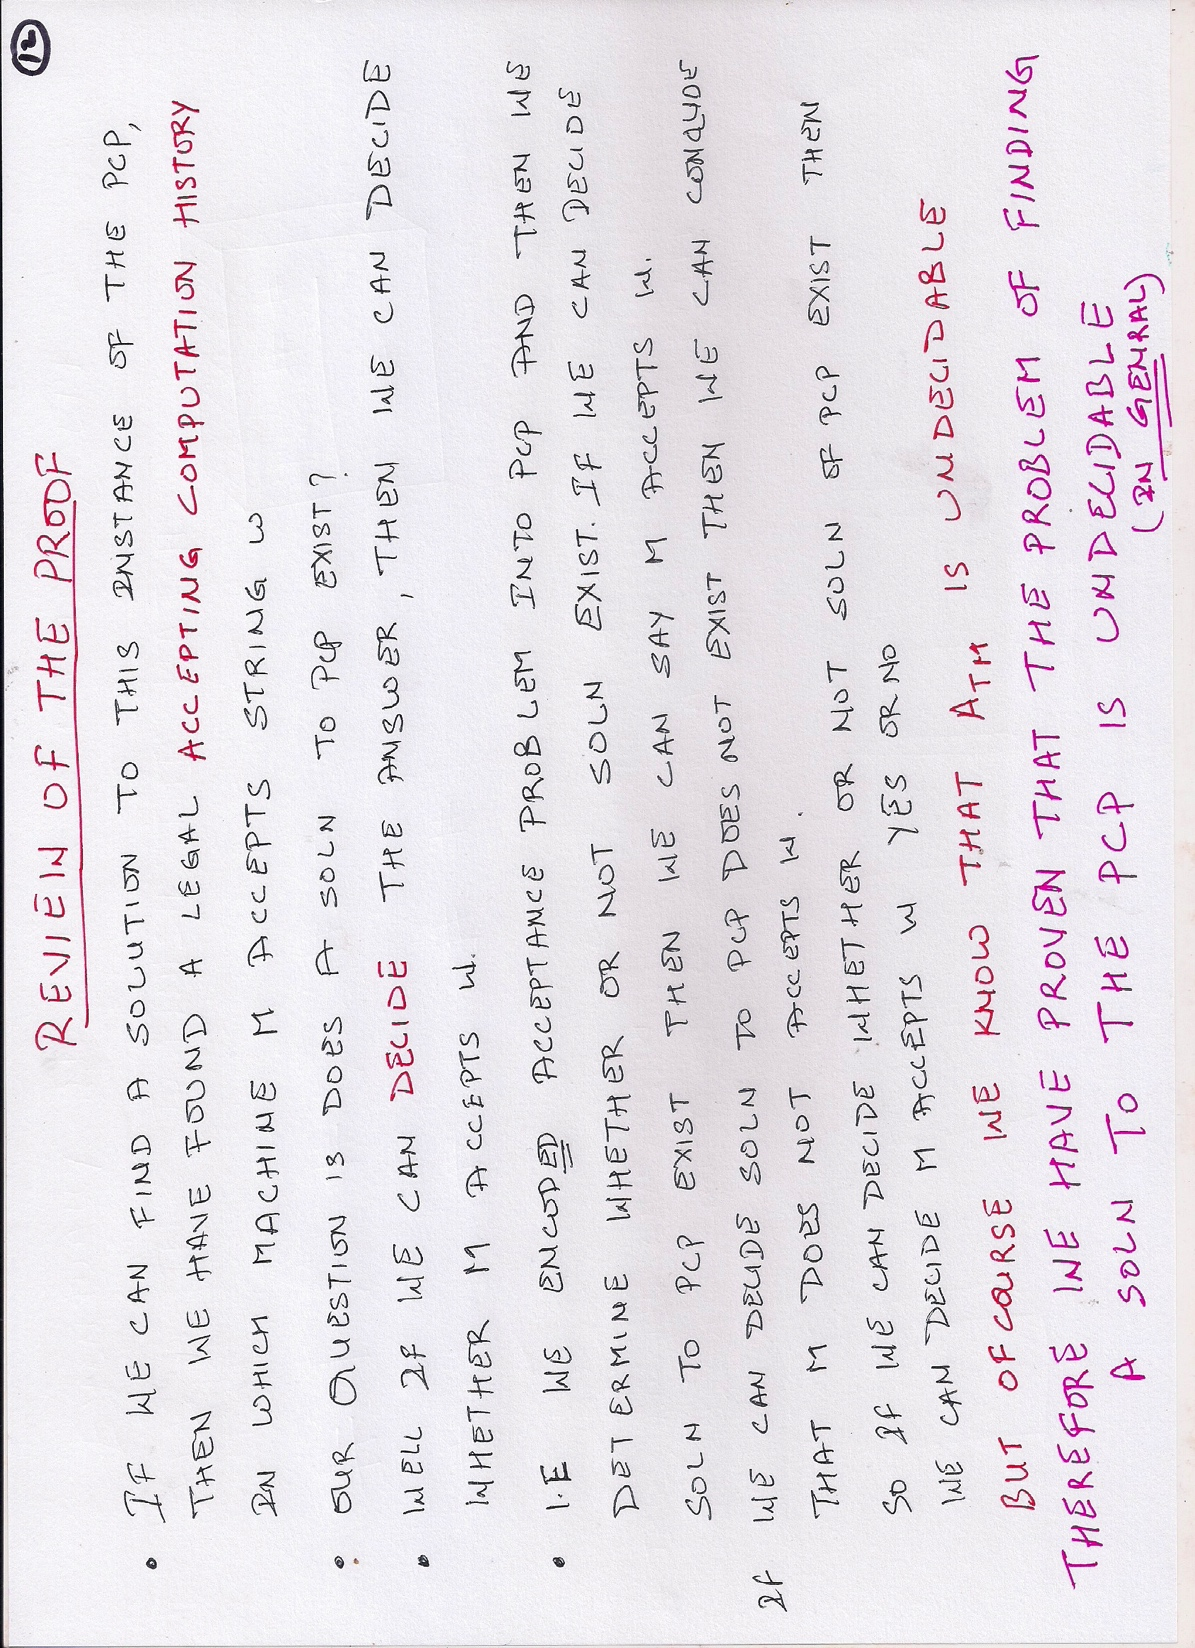 12
REVIEW OF THE PROOF
• IF WE CAN FIND A SOLUTION TO THIS INSTANCE OF THE PCP,
THEN WE HAVE FOUND A LEGAL ACCEPTING COMPUTATION HISTORY
IN WHICH MACHINE M ACCEPTS STRING W
• OUR QUESTION IS DOES A SOLN TO PCP EXIST?
• WELL IF WE CAN DECIDE THE ANSWER, THEN WE CAN DECIDE
WHETHER M ACCEPTS W.
• I.E WE ENCODED ACCEPTANCE PROBLEM INTO PCP AND THEN WE
DETERMINE WHETHER OR NOT SOLN EXIST. IF WE CAN DECIDE
SOLN TO PCP EXIST THEN WE CAN SAY M ACCEPTS W.
IF WE CAN DECIDE SOLN TO PCP DOES NOT EXIST THEN WE CAN CONCLUDE
THAT M DOES NOT ACCEPTS W.
SO IF WE CAN DECIDE WHETHER OR NOT SOLN OF PCP EXIST THEN
WE CAN DECIDE M ACCEPTS W YES OR NO
BUT OF COURSE WE KNOW THAT ATM IS UNDECIDABLE
THEREFORE WE HAVE PROVEN THAT THE PROBLEM OF FINDING
A SOLN TO THE PCP IS UNDECIDABLE
(IN GENRAL)